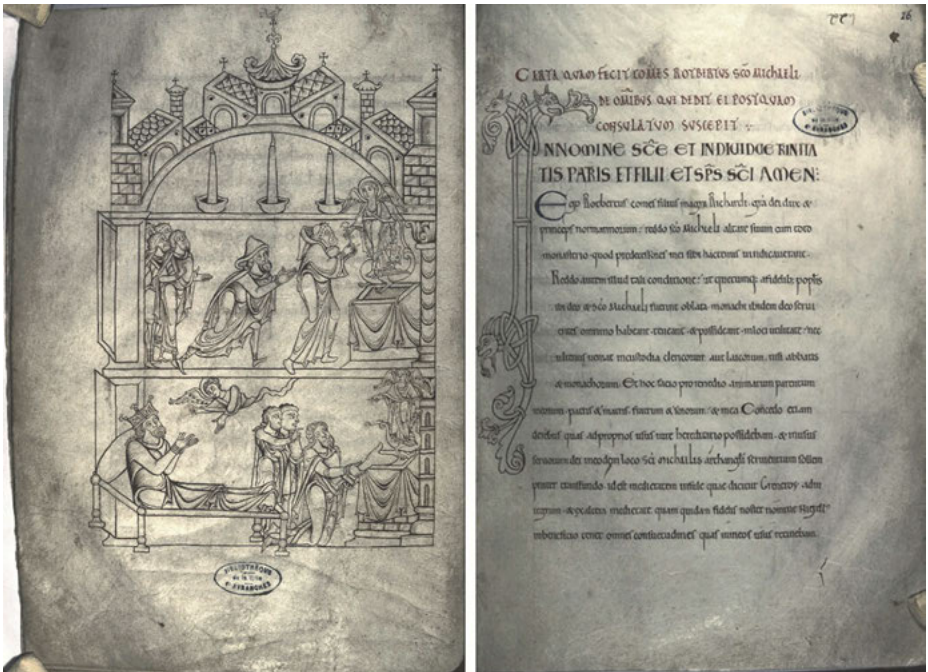 BIBLIOTHÈQUE
de la Ville
d'AVRANCHES
26
CARTA QUAM FECIT COMES ROTBERTUS SCO MICHAELI
DE OMIBUS QUI DEDIT EI POSTQUAM
CONSULATUM SUSCEPIT
INNOMINE SCE ET INDIVIDUE TRINITA
TIS PATRIS ET FILII ET SPS SCI AMEN
Ego Rotbertus comes filius magni Richardi gra dei dux &
princeps normannorum reddo sco Michaeli altare suum cum toto
monasterio quod predecessores mei sibi hactenus uindicauerant
Reddo autem illud tali conditione ut quecumq a fidelib poplis
in deo & sco Michaeli fuerint oblata monachi ibidem deo serui
entes omnino habeant teneant & possideant inloci utilitate nec
ulterius ueniat incustodia clericorum aut laicorum nisi abbatis
& monachorum Et hoc facio pro remedio animarum parentum
meorum patris & matris fratrum & sororum & mea Concedo etiam
de rebus quas ad proprios usus iure hereditario possidebam & in usus
seruorum dei in eodem loco sci michaelis archangeli
id est medietatem insule que dicitur
medietatem quam quidam fidelis noster nomine
in beneficio tenet omnes consuetudines quas in meos usus retinebam